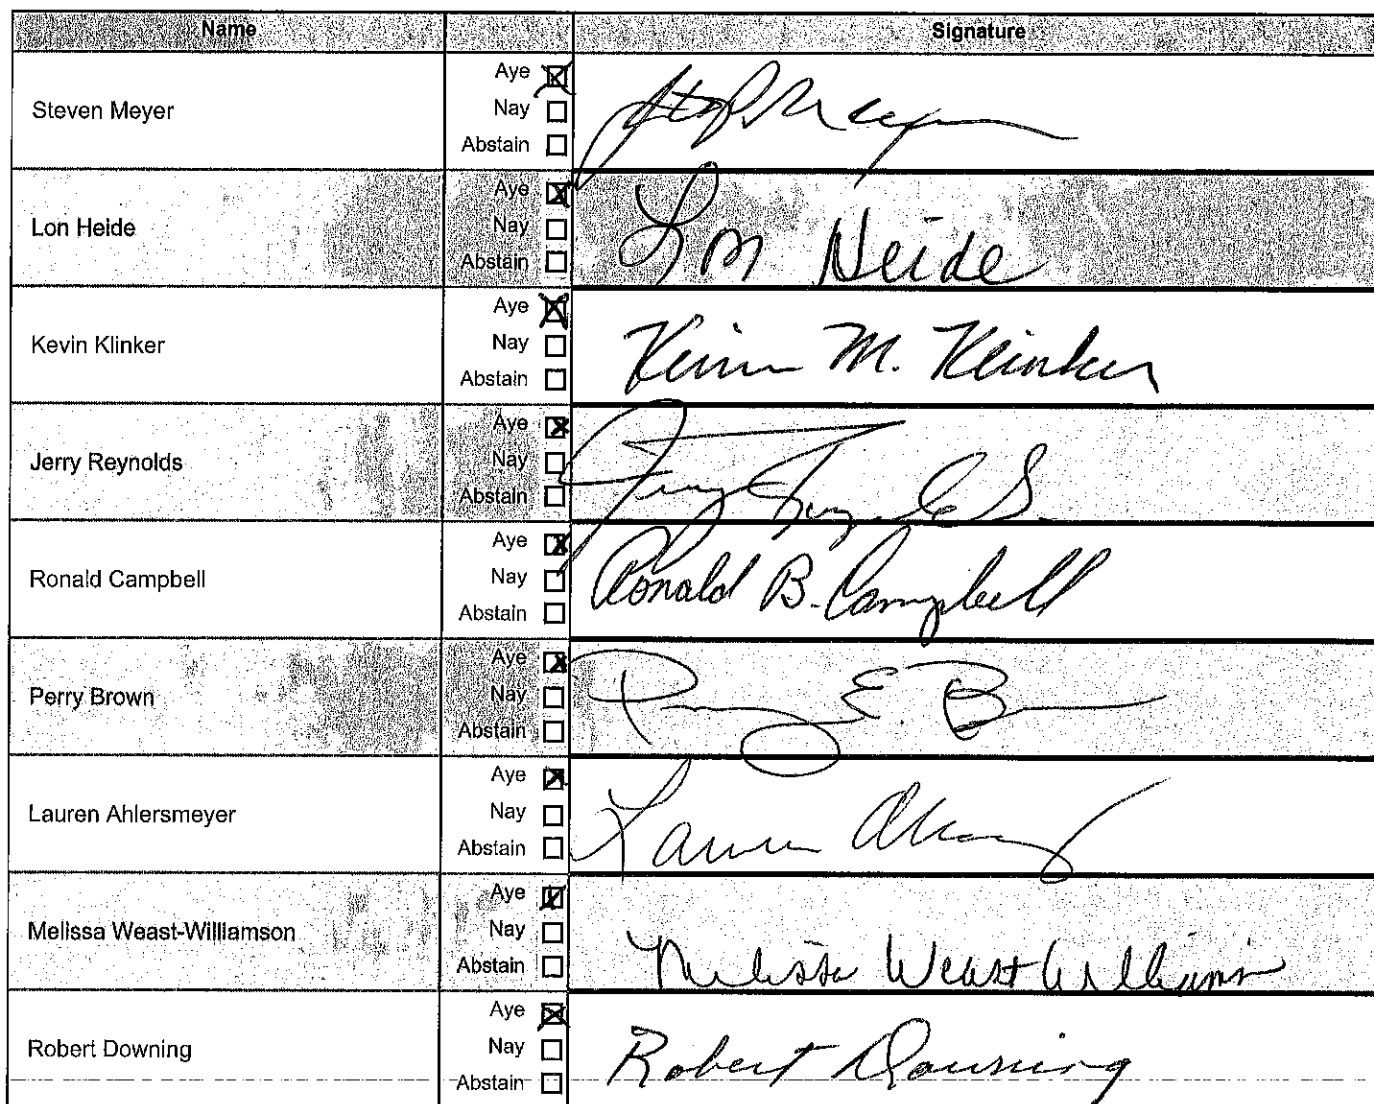 Name Signature
Steven Meyer
Aye ☒
Nay ☐
Abstain ☐
Lon Heide
Aye ☒
Nay ☐
Abstain ☐
Lon Heide
Kevin Klinker
Aye ☒
Nay ☐
Abstain ☐
Kevin M. Klinker
Jerry Reynolds
Aye ☒
Nay ☐
Abstain ☐
Ronald Campbell
Aye ☒
Nay ☐
Abstain ☐
Ronald B. Campbell
Perry Brown
Aye ☒
Nay ☐
Abstain ☐
Perry E. B
Lauren Ahlersmeyer
Aye ☒
Nay ☐
Abstain ☐
Lauren
Melissa Weast-Williamson
Aye ☒
Nay ☐
Abstain ☐
Melissa Weast Williamson
Robert Downing
Aye ☒
Nay ☐
Abstain ☐
Robert Downing